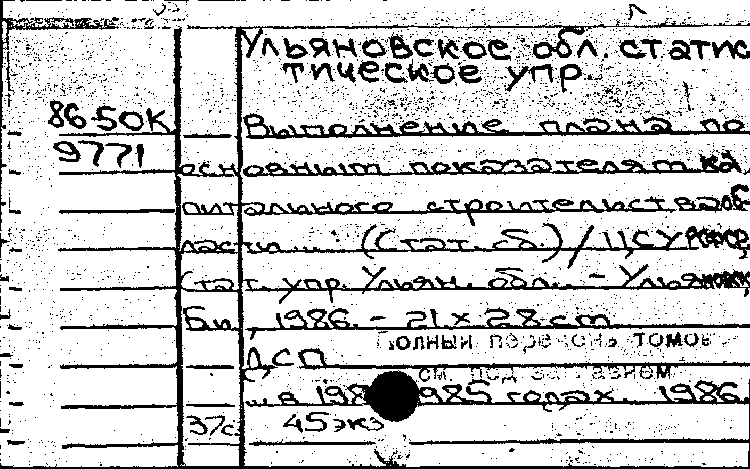 Ульяновское обл. статис
тическое упр.
86-50К
Выполнение плана по
9771
основным показателям ка
питального строительства обл
ласти... (Стат. сб.) / ЦСУ РСФСР,
Стат. упр. Ульян. обл. - Ульяновск
Би, 1986. - 21 x 28 cm
Полный перечень томов
ДСП
см. под заглавием
...в 198 985 годах. 1986.
37с. 45экз